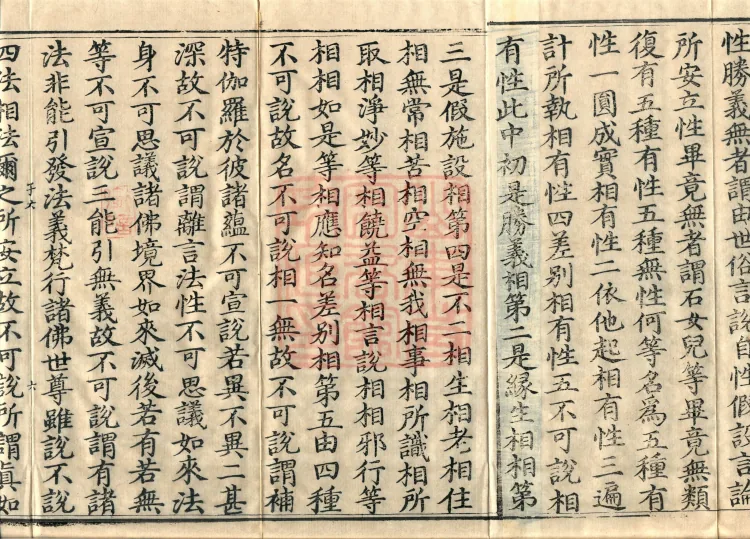 性勝義無者謂由世俗言說自性假設言論
所安立性畢竟無者謂石女兒等畢竟無類
復有五種有性五種無性何等名爲五種有
性一圓成實相有性二依他起相有性三遍
計所執相有性四差別相有性五不可說相
有性此中初是勝義相第二是緣生相相第
三是假施設相第四是不二相生相老相住
相無常相苦相空相無我相事相所識相所
取相淨妙等相饒益等相言說相相邪行等
相相如是等相應知名差別相第五由四種
不可說故名不可說相一無故不可說謂補
特伽羅於彼諸蘊不可宣說若異不異二甚
深故不可說謂離言法性不可思議如來法
身不可思議諸佛境界如來滅後若有若無
等不可宣說三能引無義故不可說謂有諸
法非能引發法義梵行諸佛世尊雖說不說
四法相法爾之所安立故不可說所謂眞如
六